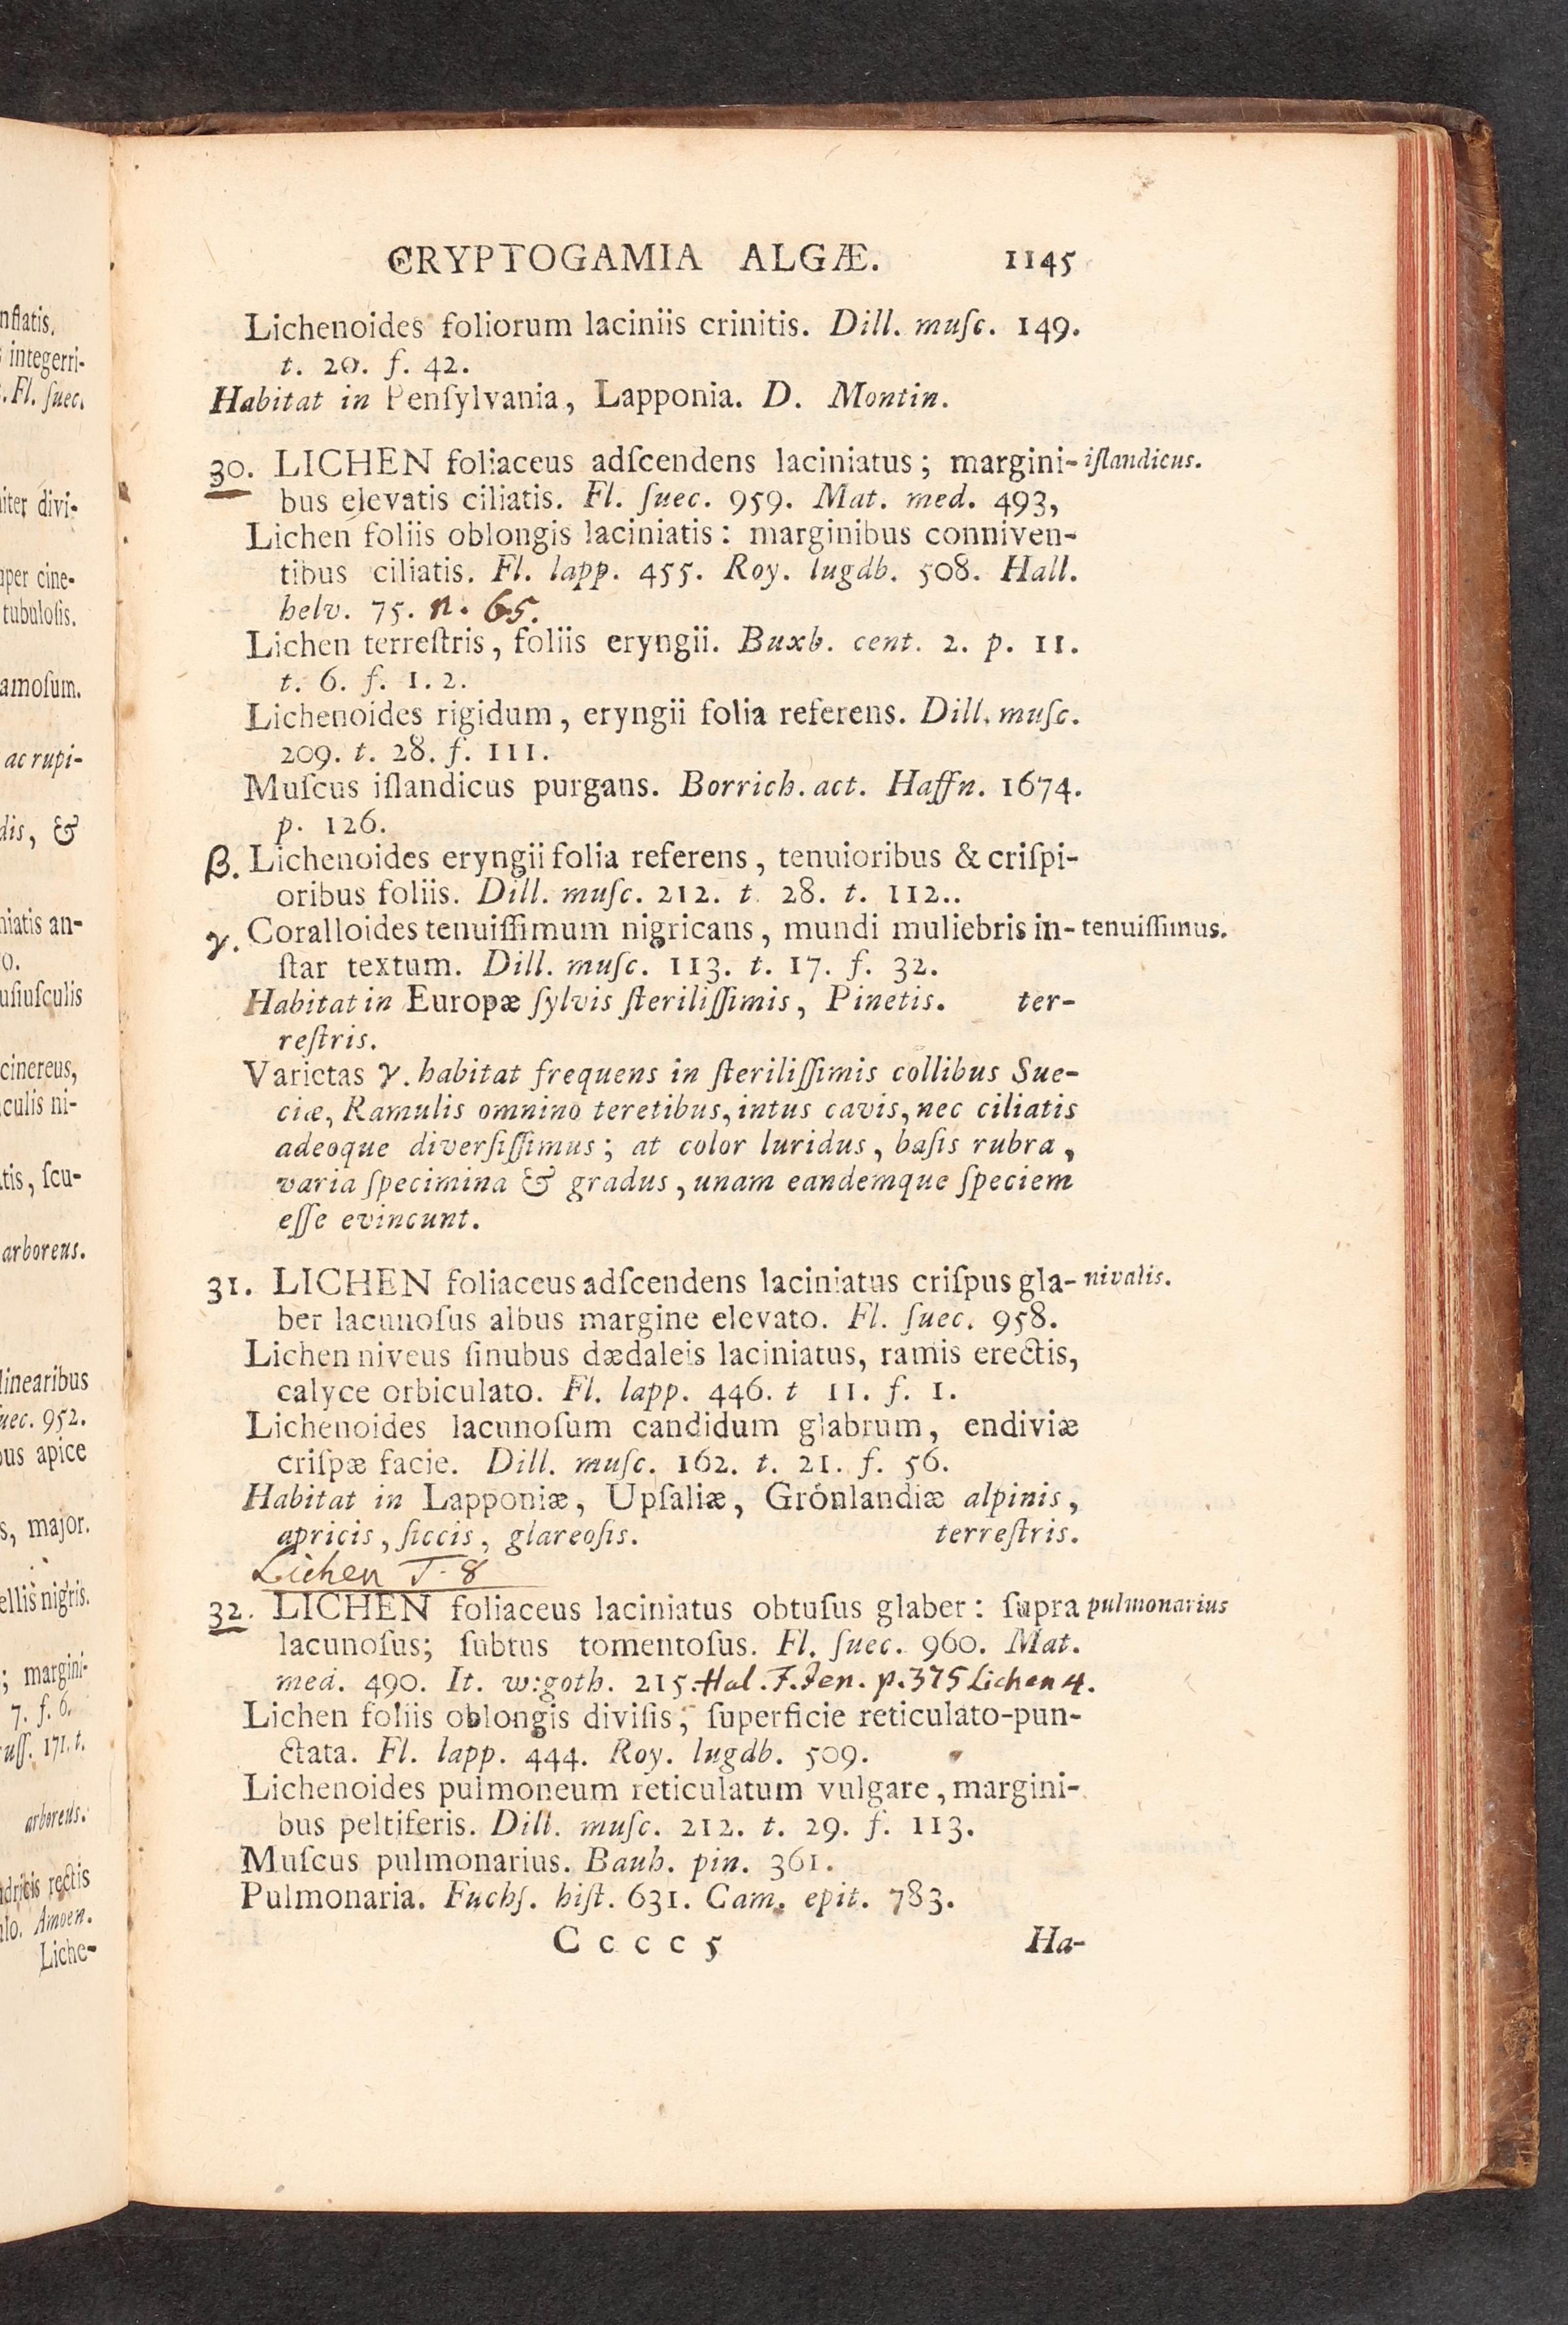 nflatis.
integerri-
. Fl. ſuec.
iter divi-
uper cine-
tubulofis.
amoſum.
ac rupi-
dis, &
niatis an-
o.
uſiuſculis
cinereus,
culis ni-
tis, ſcu-
arboreus.
linearibus
uec. 952.
ous apice
s, major.
ellis nigris.
; margini-
7. f. 6.
uſſ. 171. t.
arboreus.
rectis
Amoen.
Liche-
CRYPTOGAMIA ALGÆ. 1145
Lichenoides foliorum laciniis crinitis. Dill. muſc. 149.
t. 20. f. 42.
Habitat in Penſylvania, Lapponia. D. Montin.
30. LICHEN foliaceus adſcendens laciniatus; margini- iſlandicus.
bus elevatis ciliatis. Fl. ſuec. 959. Mat. med. 493,
Lichen foliis oblongis laciniatis: marginibus conniven-
tibus ciliatis. Fl. lapp. 455. Roy. lugdb. 508. Hall.
helv. 75. n. 65.
Lichen terreſtris, foliis eryngii. Buxb. cent. 2. p. 11.
t. 6. f. 1. 2.
Lichenoides rigidum, eryngii folia referens. Dill. muſc.
209. t. 28. f. 111.
Muſcus iſlandicus purgans. Borrich. act. Haffn. 1674.
p. 126.
β. Lichenoides eryngii folia referens, tenuioribus & criſpi-
oribus foliis. Dill. muſc. 212. t. 28. t. 112..
γ. Coralloides tenuiſſimum nigricans, mundi muliebris in- tenuiſſimus.
ſtar textum. Dill. muſc. 113. t. 17. f. 32.
Habitat in Europæ ſylvis ſteriliſſimis, Pinetis. ter-
reſtris.
Varietas γ. habitat frequens in ſteriliſſimis collibus Sue-
ciæ, Ramulis omnino teretibus, intus cavis, nec ciliatis
adeoque diverſiſſimus; at color luridus, baſis rubra,
varia ſpecimina & gradus, unam eandemque ſpeciem
eſſe evincunt.
31. LICHEN foliaceus adſcendens laciniatus criſpus gla- nivalis.
ber lacunoſus albus margine elevato. Fl. ſuec. 958.
Lichen niveus ſinubus dædaleis laciniatus, ramis erectis,
calyce orbiculato. Fl. lapp. 446. t 11. f. 1.
Lichenoides lacunoſum candidum glabrum, endiviæ
criſpæ facie. Dill. muſc. 162. t. 21. f. 56.
Habitat in Lapponiæ, Upſaliæ, Grönlandiæ alpinis,
apricis, ſiccis, glareoſis. terreſtris.
Lichen T. 8
32. LICHEN foliaceus laciniatus obtuſus glaber: ſupra pulmonarius
lacunoſus; ſubtus tomentoſus. Fl. ſuec. 960. Mat.
med. 490. It. w:goth. 215. Hal. F. Jen. p. 375 Lichen 4.
Lichen foliis oblongis diviſis, ſuperficie reticulato-pun-
ctata. Fl. lapp. 444. Roy. lugdb. 509.
Lichenoides pulmoneum reticulatum vulgare, margini-
bus peltiferis. Dill. muſc. 212. t. 29. f. 113.
Muſcus pulmonarius. Bauh. pin. 361.
Pulmonaria. Fuchſ. hiſt. 631. Cam. epit. 783.
C c c c 5 Ha-